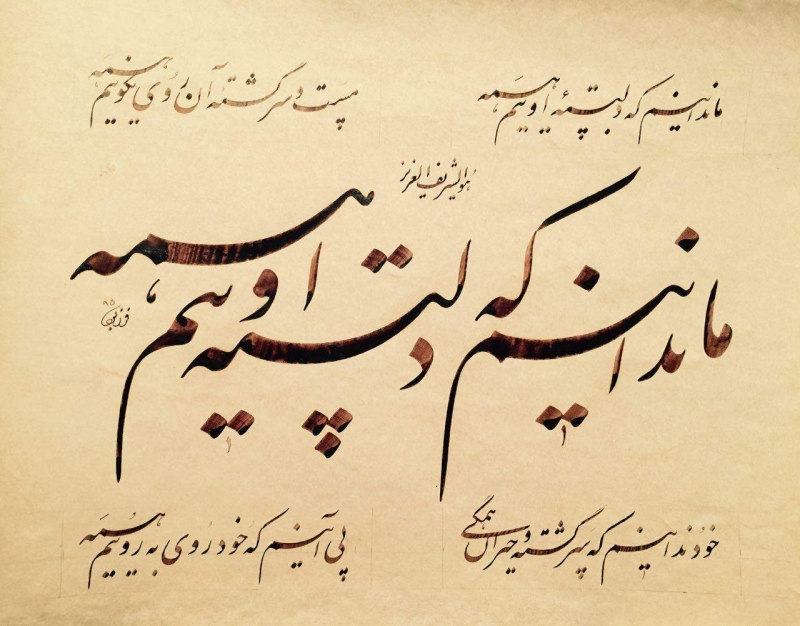 ما ندانیم که دلبستهٔ اوییم همه
مست و سرگشتهٔ آن روی نکوییم همه
هوالشریف العزیز
ما ندانیم که دلبسته اوییم همه
۹۵
خود ندانیم که سرگشته و حیران همگی
پی آنیم که خود روی به روییم همه